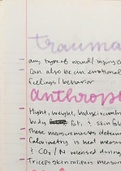 trauma
any type of wound/injury
can also be an emotional
feelings/behavior
anthrop
Hight, weight, bodycircumf
body fat, & skin
these measurements determ
Calorimetry is heat measur
& CO2 / be measured during
Triceps skin measure